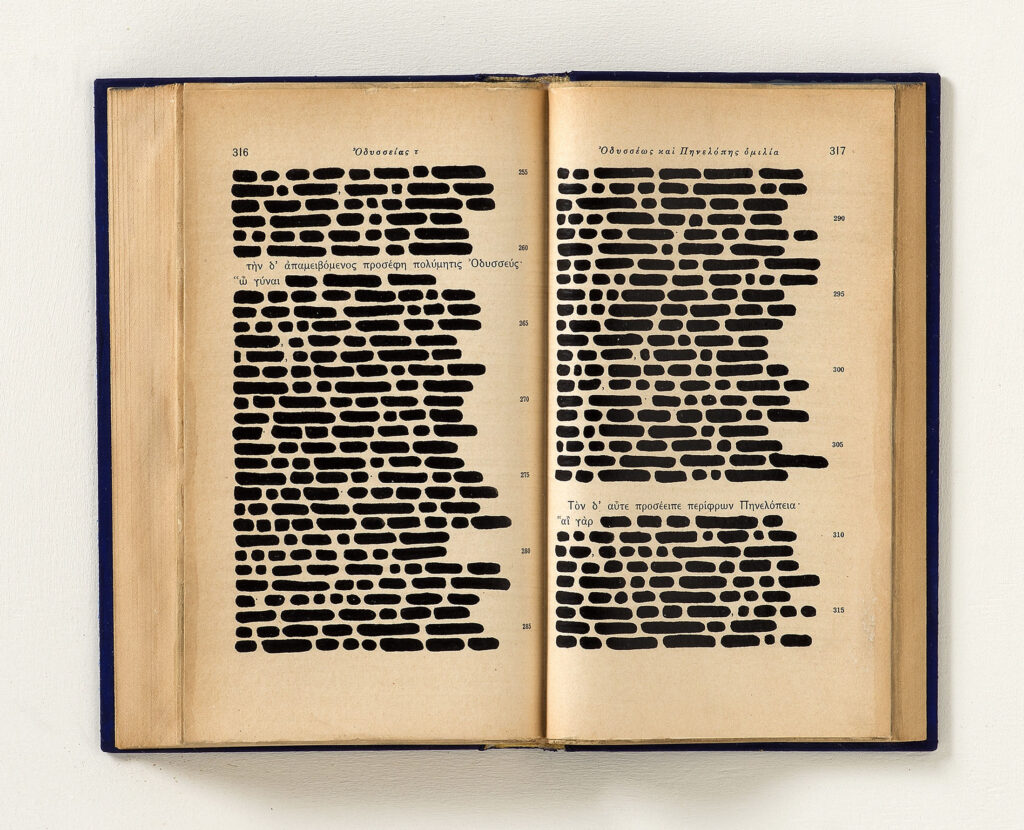 316 Ὀδυσσείας τ
255
260
τὴν δ' ἀπαμειβόμενος προσέφη πολύμητις Ὀδυσσεύς·
“ὦ γύναι
265
270
275
280
285
Ὀδυσσέως καὶ Πηνελόπης ὁμιλία 317
290
295
300
305
Τὸν δ' αὖτε προσέειπε περίφρων Πηνελόπεια·
“αἲ γὰρ
310
315